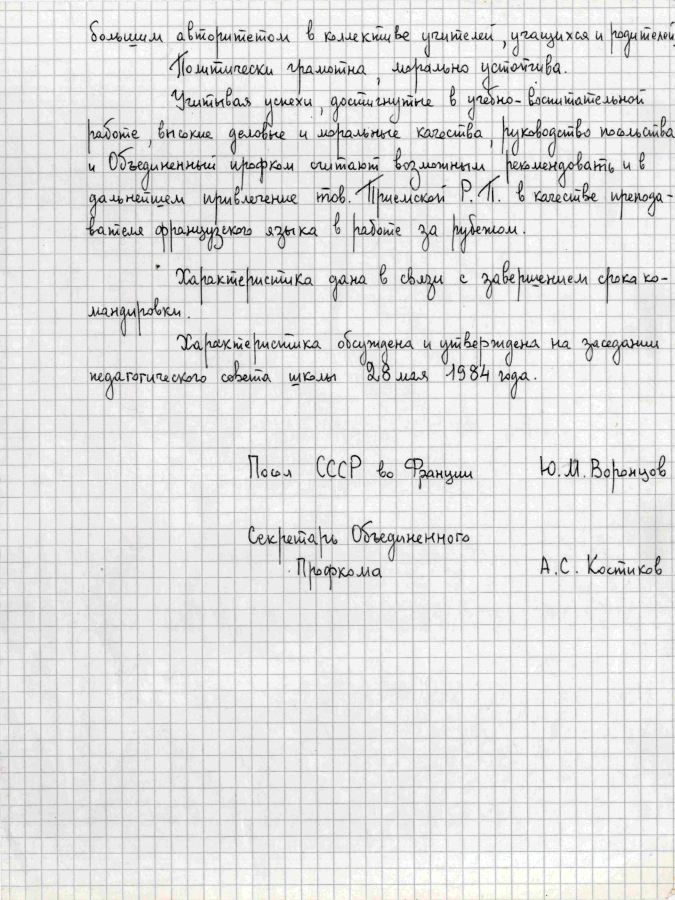 большим авторитетом в коллективе учителей, учащихся и родителей.
Политически грамотна, морально устойчива.
Учитывая успехи, достигнутые в учебно-воспитательной
работе, высокие деловые и моральные качества, руководство посольства
и Объединенный профком считают возможным рекомендовать и в
дальнейшем привлечение тов. Приемской Р. П. в качестве препода-
вателя французского языка в работе за рубежом.
Характеристика дана в связи с завершением срока ко-
мандировки.
Характеристика обсуждена и утверждена на заседании
педагогического совета школы 28 мая 1984 года.
Посол СССР во Франции Ю. М. Воронцов
Секретарь Объединенного
Профкома А. С. Костиков